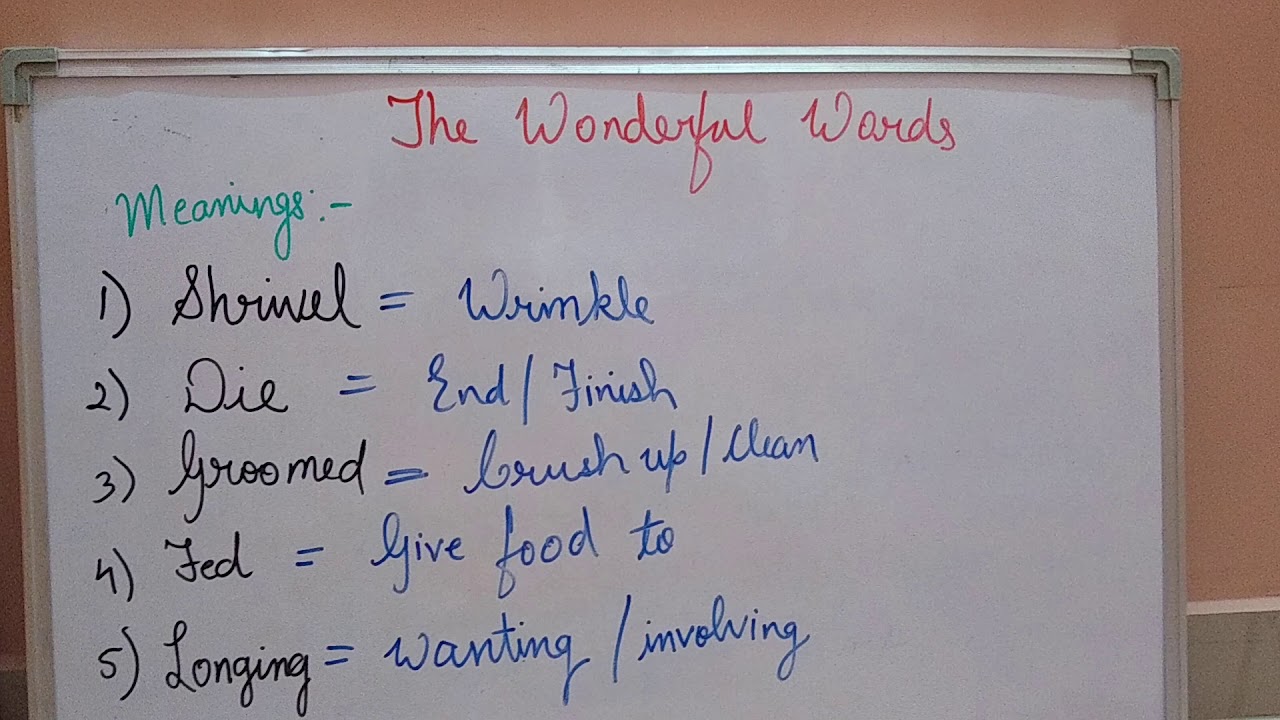 The Wonderful Words
Meanings:-
1) Shrivel = Wrinkle
2) Die = End/Finish
3) Groomed = brush up/clean
4) Fed = Give food to
5) Longing = wanting/involving